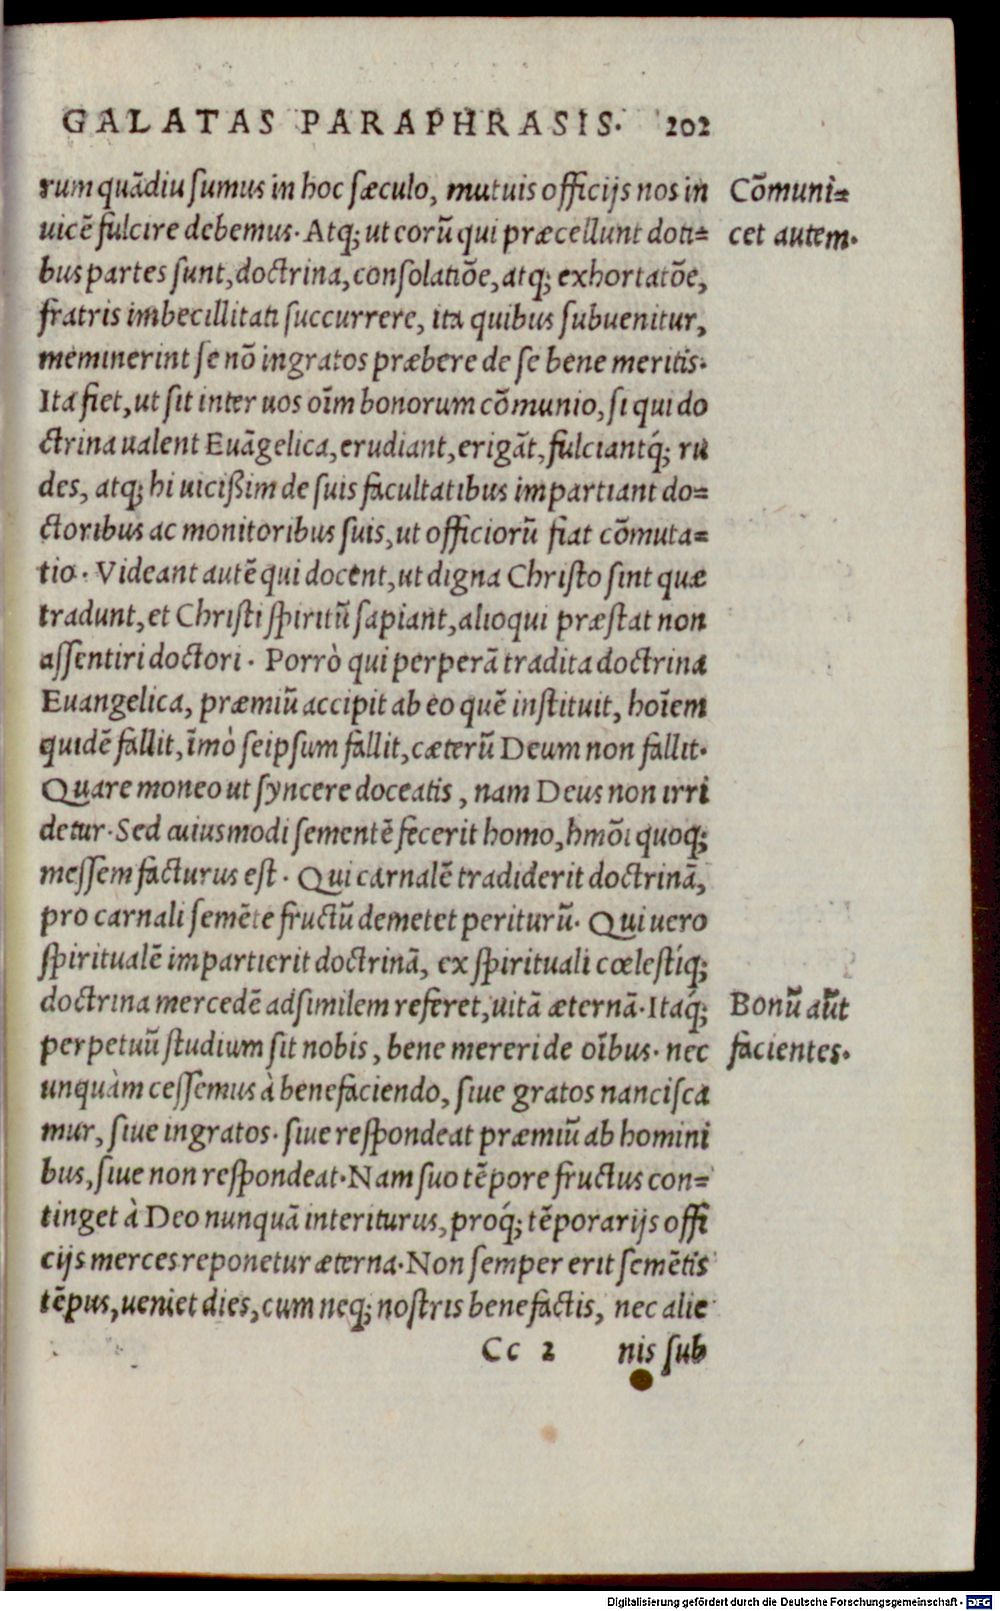 GALATAS PARAPHRASIS. 202
rum quādiu ſumus in hoc ſæculo, mutuis officijs nos in
uicē fulcire debemus. Atq; ut eorū qui præcellunt doti=
bus partes ſunt, doctrina, conſolatiōe, atq; exhortatōe,
fratris imbecillitati ſuccurrere, ita quibus ſubuenitur,
meminerint ſe nō ingratos præbere de ſe bene meritis.
Ita fiet, ut ſit inter uos oīm bonorum cōmunio, ſi qui do
ctrina ualent Euāgelica, erudiant, erigāt, fulciantq́; ru
des, atq; hi uicißim de ſuis facultatibus impartiant do=
ctoribus ac monitoribus ſuis, ut officiorū fiat cōmuta=
tio. Videant autē qui docent, ut digna Chriſto ſint quæ
tradunt, et Chriſti ſpiritū ſapiant, alioqui præſtat non
aſſentiri doctori. Porrò qui perperā tradita doctrina
Euangelica, præmiū accipit ab eo quē inſtituit, hoīem
quidē fallit, īmò ſeipſum fallit, cæterū Deum non fallit.
Quare moneo ut ſyncere doceatis, nam Deus non irri
detur. Sed cuiusmodi ſementē fecerit homo, hmōi quoq;
meſſem facturus eſt. Qui carnalē tradiderit doctrinā,
pro carnali ſemēte fructū demetet periturū. Qui uero
ſpiritualē impartierit doctrinā, ex ſpirituali cœleſtíq;
doctrina mercedē adſimilem referet, uitā æternā. Itaq́;
perpetuū ſtudium ſit nobis, bene mereri de oībus. nec
unquàm ceſſemus à benefaciendo, ſiue gratos nanciſca
mur, ſiue ingratos. ſiue reſpondeat præmiū ab homini
bus, ſiue non reſpondeat. Nam ſuo tēpore fructus con=
tinget à Deo nunquā interiturus, proq́; tēporarijs offi
cijs merces reponetur æterna. Non ſemper erit ſemētis
tēpus, ueniet dies, cum neq; noſtris benefactis, nec alie
Cc 2 nis ſub
Cōmuni=
cet autem.
Bonū aūt
facientes.
Digitalisierung gefördert durch die Deutsche Forschungsgemeinschaft - DFG